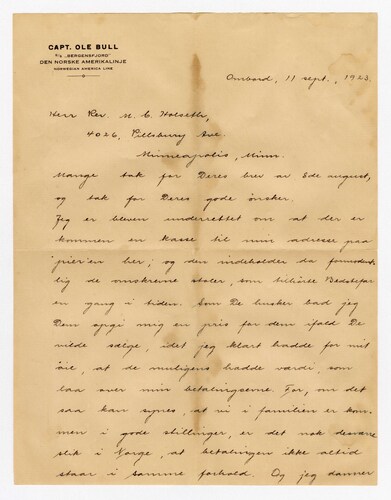 CAPT. OLE BULL
S/S „BERGENSFJORD"
DEN NORSKE AMERIKALINJE
NORWEGIAN AMERICA LINE
Ombord, 11 sept., 1923.
Herr Rev. N. C. Holseth,
4026, Pillsbury Ave.
Minneapolis, Minn.
Mange tak for Deres brev av 8de august,
og tak for Deres gode ønsker.
Jeg er bleven underrettet om at der er
kommen en kasse til min adresse paa
pier'en her; og den indeholder da formodent-
lig de omskrevne stoler, som tilhörte Bedstefar
en gang i tiden. Som De husker bad jeg
Dem opgi mig en pris for dem ifald De
vilde sælge, idet jeg klart hadde for mit
öie, at de muligens hadde værdi, som
laa over min betalingsevne. For, om det
saa kan synes, at vi i familien er kom-
men i gode stillinger, er det nok desværre
slik i Norge, at betalingen ikke altid
staar i samme forhold. Og jeg danner